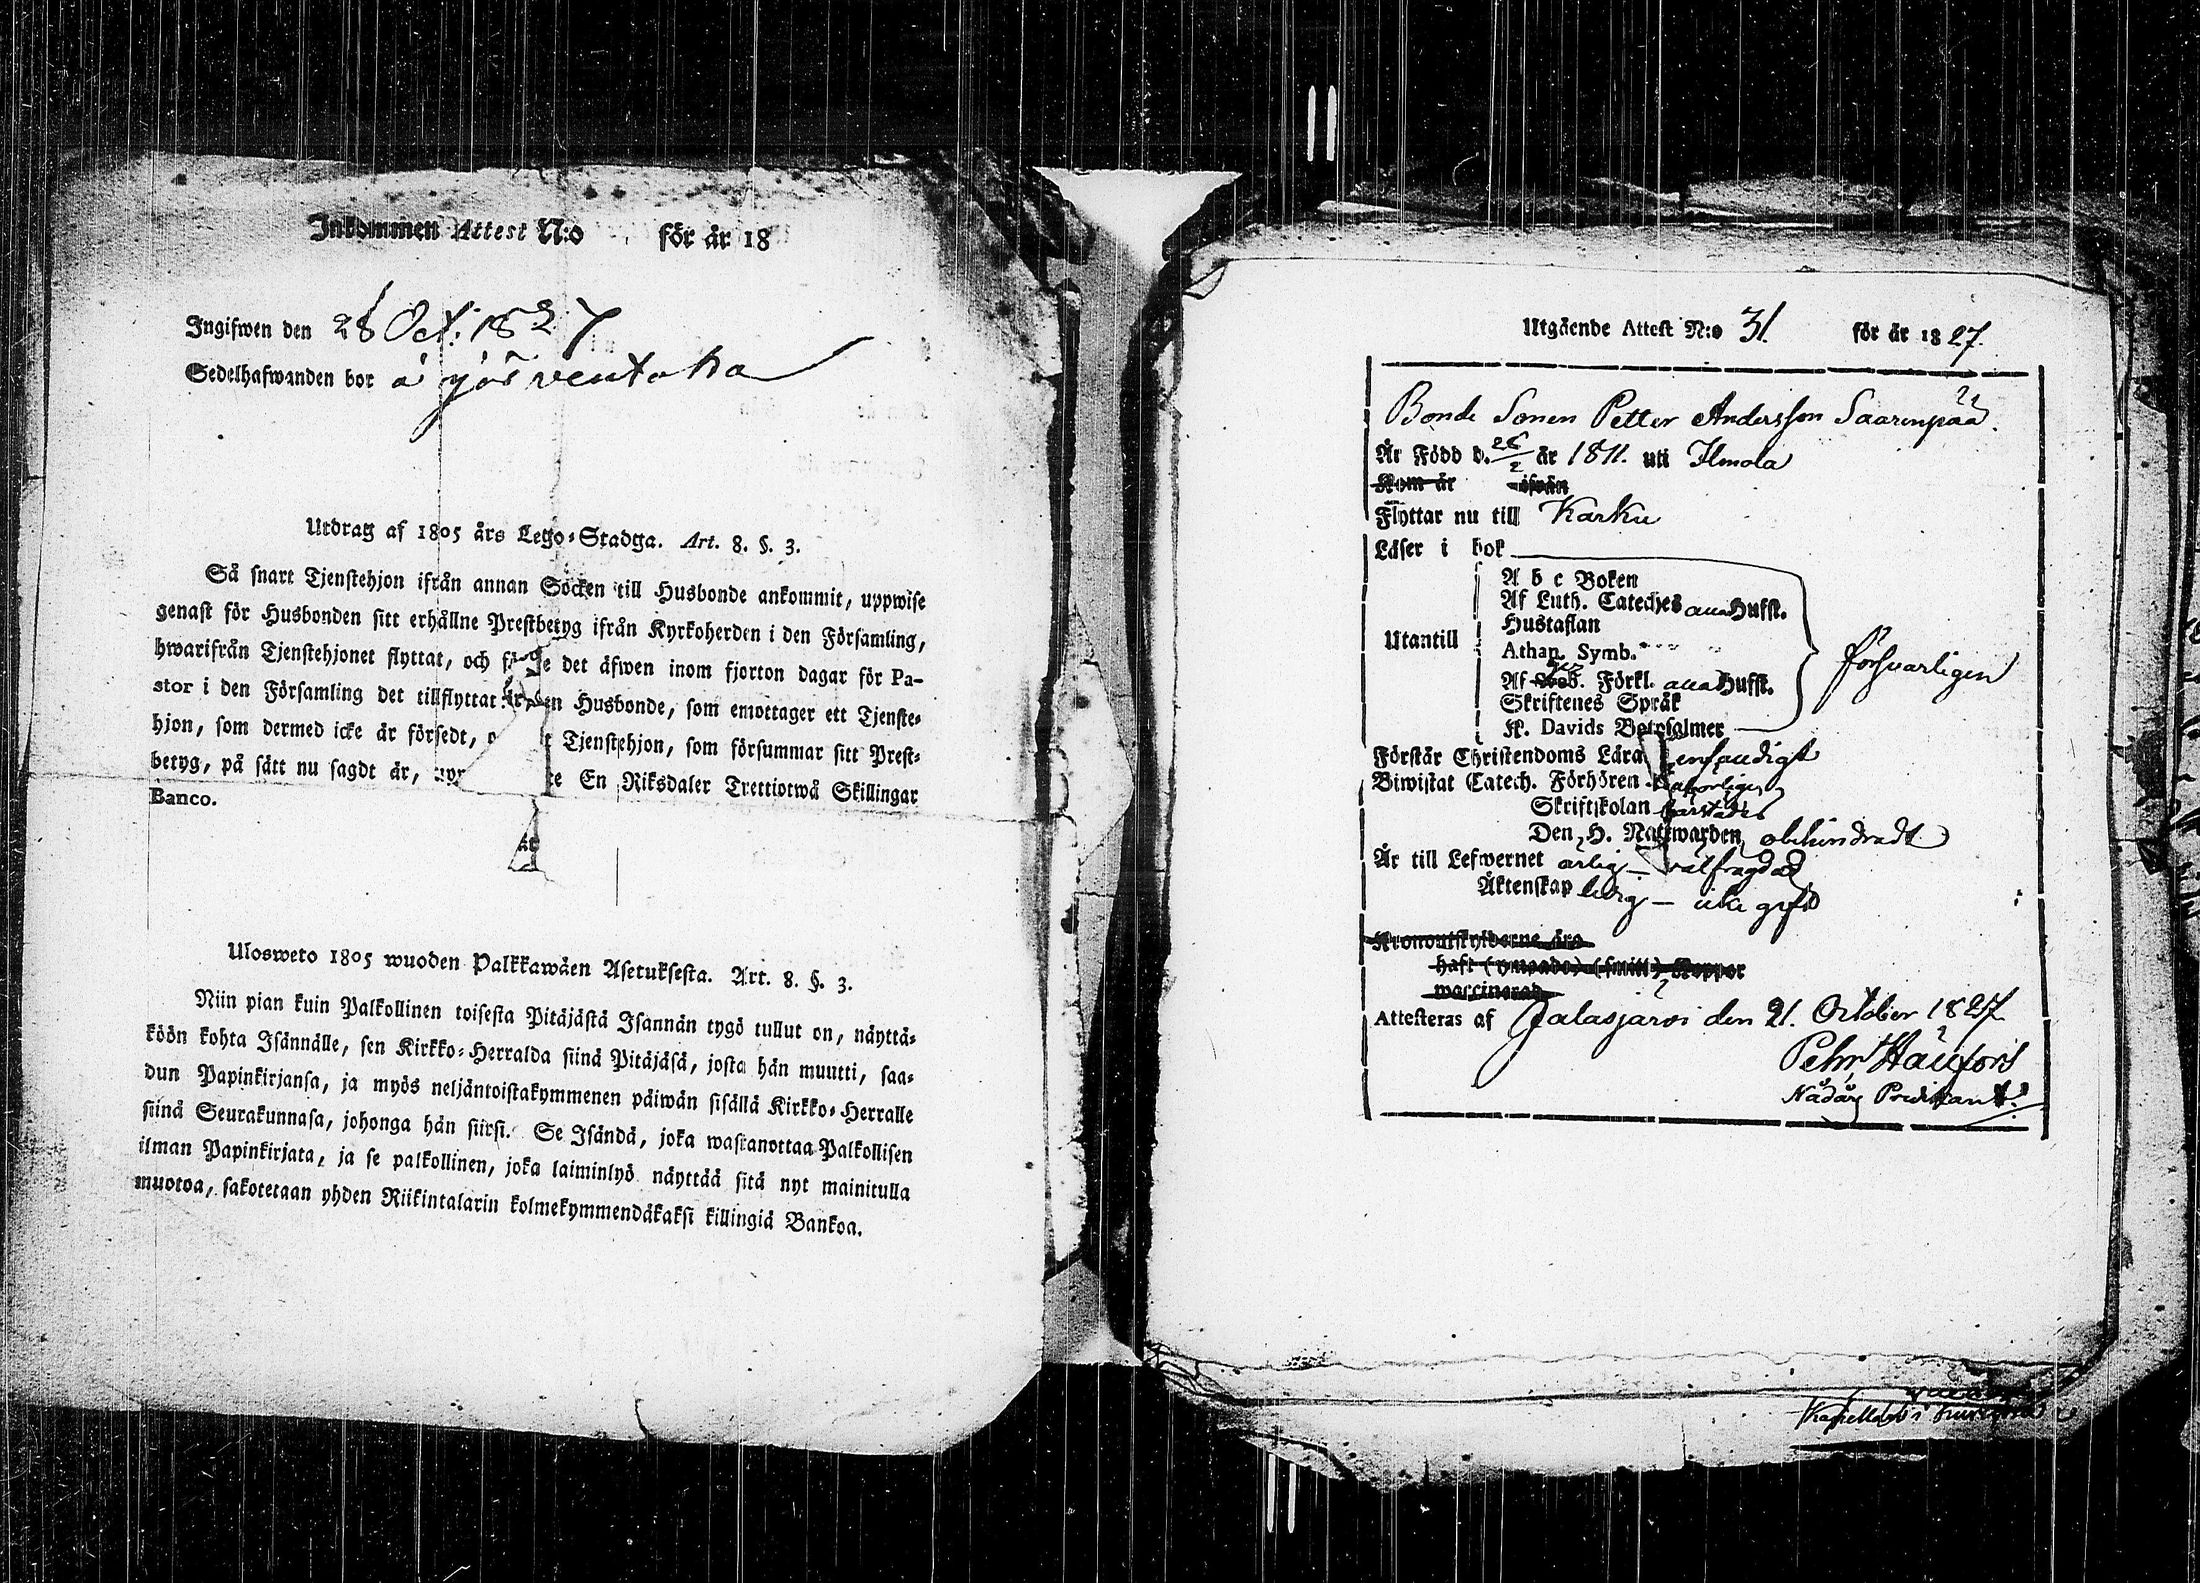 Inkommen Attest N:o för år 18
Ingifwen den 28 Oct: 1827
Sedelhafwanden bor å
Utdrag af 1805 års Lego-Stadga. Art. 8. §. 3.
Så snart Tjenstehjon ifrån annan Socken till Husbonde ankommit, uppwise
genast för Husbonden sitt erhållne Prestbetyg ifrån Kyrkoherden i den Församling,
hwarifrån Tjenstehjonet flyttat, och det äfwen inom fjorton dagar för Pa-
stor i den Församling det tillflyttat är, den Husbonde, som emottager ett Tjenste-
hjon, som dermed icke är försedt, Tjenstehjon, som försummar sitt Prest-
betyg, på sätt nu sagdt är, En Riksdaler Trettiotwå Skillingar
Banco.
Ulosweto 1805 wuoden Palkkawäen Asetuksesta. Art. 8. §. 3.
Niin pian kuin Palkollinen toisesta Pitäjästä Isännän tygö tullut on, näyttä-
köön kohta Isännälle, sen Kirkko-Herralda siinä Pitäjäsä, josta hän muutti, saa-
dun Papinkirjansa, ja myös neljäntoistakymmenen päiwän sisällä Kirkko-Herralle
siinä Seurakunnasa, johonga hän siirsi. Se Isändä, joka wastanottaa Palkollisen
ilman Papinkirjata, ja se palkollinen, joka laiminlyö näyttää sitä nyt mainitulla
muotoa, sakotetaan yhden Riikintalarin kolmekymmendäkaksi killingiä Bankoa.
Utgående Attest N:o 31. för år 1827.
Bonde Sonen Petter Andersson Saarenpää.
Är Född d. 26/2 år 1811. uti Ilmola
Kom år ifrån
Flyttar nu till Karku
Läser i bok
Utantill
A b c Boken
Af Luth. Cateches alla Hufst.
Hustaflan
Athan. Symb.
Af Förkl. alla Hufst.
Skriftenes Språk
K. Davids Botpsalmer
försvarligen
Förstår Christendoms Lära enfaldigt
Biwistat Catech. Förhören
Skriftskolan
Den H. Nattwarden obehindradt
Är till Lefwernet ärlig — välfrägdad
Äktenskap ledig — icke gift
Kronoutskylderne åro
haft (ympade) (smitt) Koppor
waccinerad
Attesteras af Jalasjärvi den 21. October 1827
Pehr
Nådår Predikant.
Kapellan i